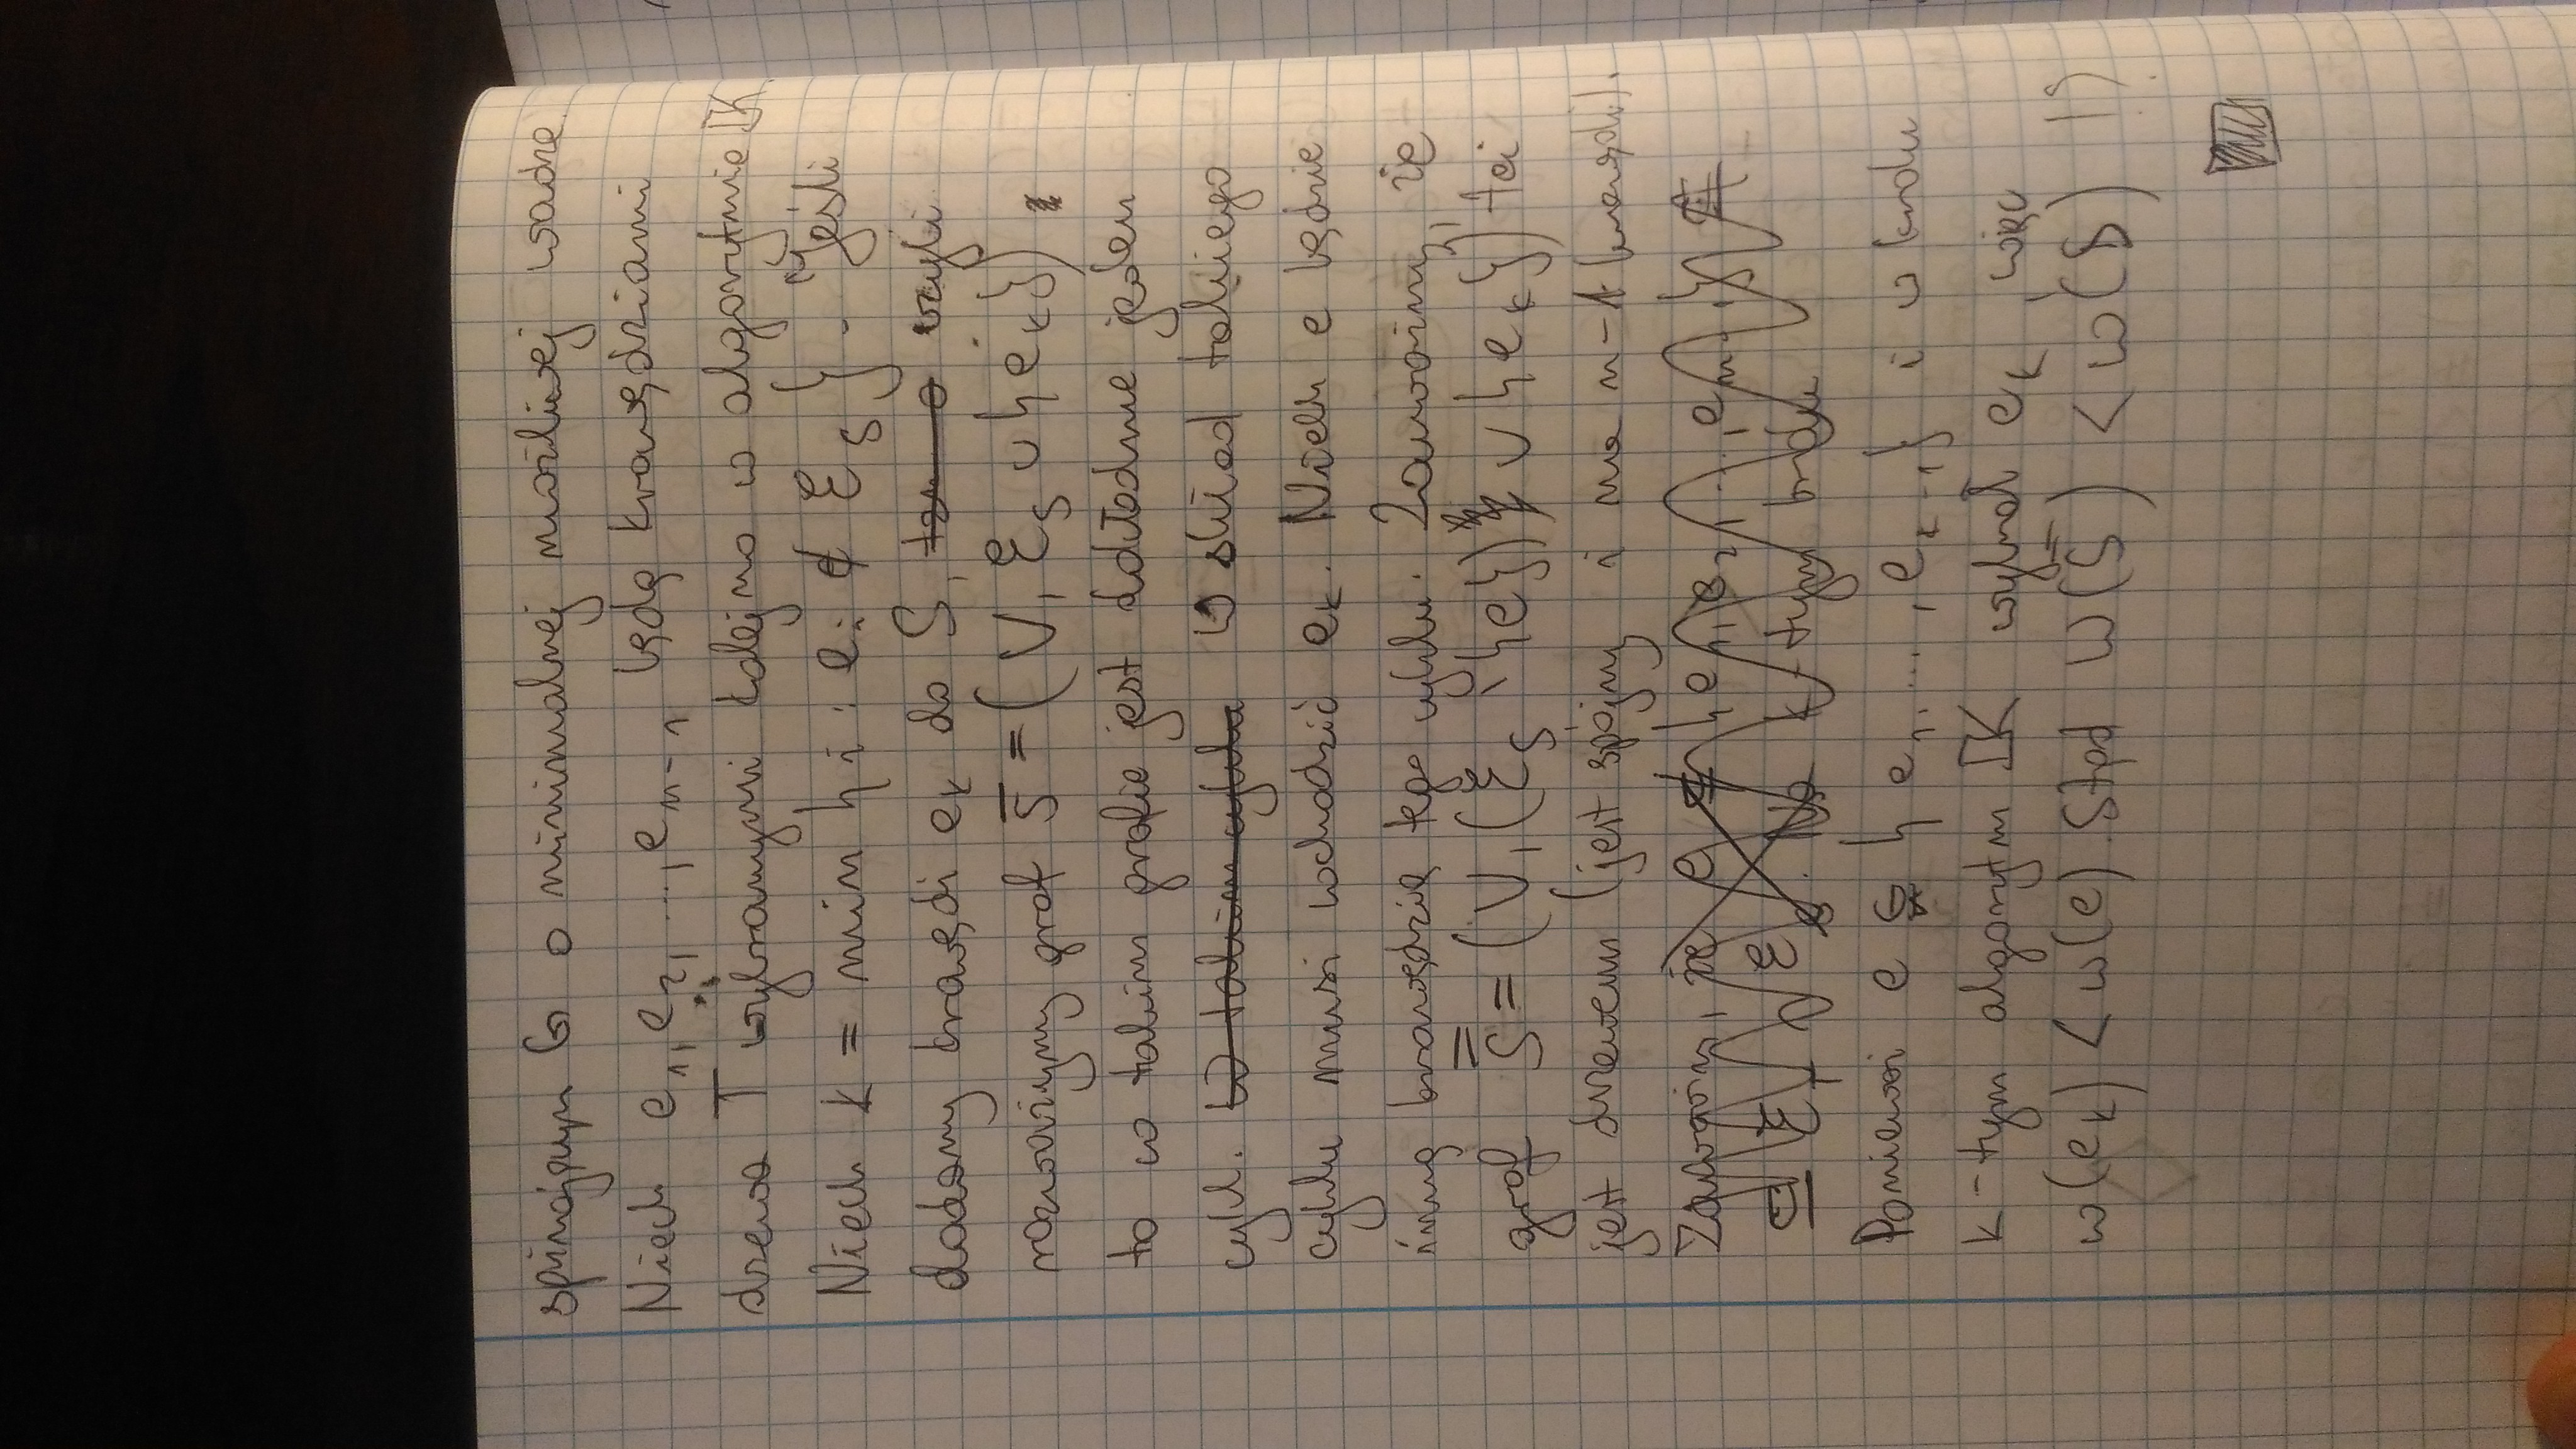 spinającym G o minimalnej możliwej wadze.
Niech e₁, e₂, ..., eₙ₋₁ będą krawędziami
drzewa T wybranymi kolejno w algorytmie IK.
Niech k = min { i : eᵢ ∉ E_S }. Jeśli
dodamy krawędź eₖ do S, czyli
rozważymy graf S̄ = (V, E_S ∪ {eₖ}),
to w takim grafie jest dokładnie jeden
cykl. W takim cyklu W skład takiego
cyklu musi wchodzić eₖ. Niech e będzie
inną krawędzią tego cyklu. Zauważmy, że
graf S̿ = (V, (E_S \ {e}) ∪ {eₖ}) też
jest drzewem (jest spójny i ma n-1 krawędzi).
Zauważmy, że e ∉ {e₁, e₂, ..., eₙ₋₁}
⊆ E_T ∩ E_S. Na k-tym kroku
Ponieważ e { e₁, ..., eₖ₋₁} i w kroku
k-tym algorytm IK wybrał eₖ, więc
w(eₖ) < w(e). Stąd w(S̿) < w(S) !?